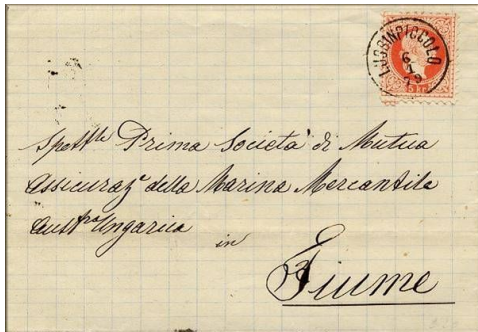 LUSSINPICCOLO
6
79
5 kr
Spettle Prima Società di Mutua
Assicuraze della Marina Mercantile
Austro Ungarica
in
Fiume